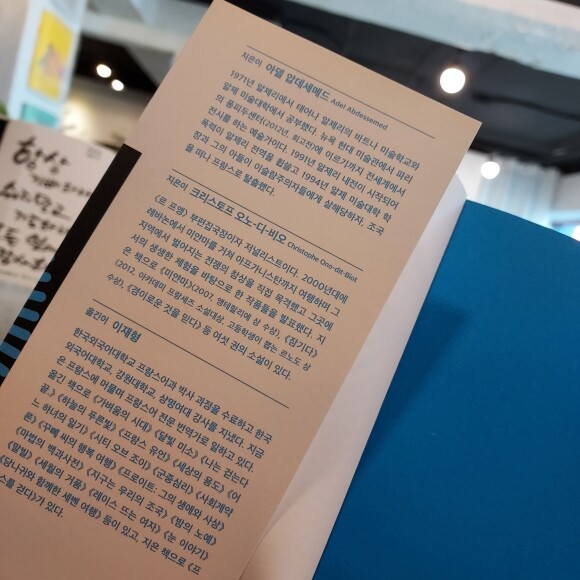 지은이 아델 압데세메드 Adel Abdessemed
1971년 알제리에서 태어나 알제리의 바트나 미술학교와
알제 미술대학에서 공부했다. 뉴욕 현대 미술관에서 파리
의 퐁피두센터(2012년, 최고의)에 이르기까지 전세계에서
전시를 하는 예술가이다. 1991년 알제리 내전이 시작되어
폭력이 알제리 전역을 휩쓸고 1994년 알제 미술대학 학
장과 그의 아들이 이슬람주의자들에게 살해당하자, 조국
을 떠나 프랑스로 탈출했다.
지은이 크리스토프 오노-디-비오 Christophe Ono-dit-Biot
《르 푸앵》 부편집국장이자 저널리스트이다. 2000년대에
레바논에서 미얀마를 거쳐 아프가니스탄까지 여행하며 그
지역에서 벌어지는 전쟁의 참상을 직접 목격했고 그곳에
서의 생생한 체험을 바탕으로 한 작품들을 발표했다. 지
은 책으로 《미얀마》(2007, 앵테랄리에 상 수상), 《잠기다》
(2012, 아카데미 프랑세즈 소설대상, 고등학생이 뽑는 르노도 상
수상), 《경이로운 것을 믿다》 등 여섯 권의 소설이 있다.
옮긴이 이재형
한국외국어대학교 프랑스어과 박사 과정을 수료하고 한국
외국어대학교, 강원대학교, 상명여대 강사를 지냈다. 지금
은 프랑스에 머물며 프랑스어 전문 번역가로 일하고 있다.
옮긴 책으로 《가벼움의 시대》 《달빛 미소》 《나는 걷는다
끝.》 《하늘의 푸른빛》 《프랑스 유언》 《세상의 용도》 《어
느 하녀의 일기》 《시티 오브 조이》 《군중심리》 《사회계약
론》 《꾸뻬 씨의 행복 여행》 《프로이트: 그의 생애와 사상》
《마법의 백과사전》 《지구는 우리의 조국》 《밤의 노예》
《말빌》 《세월의 거품》 《레이스 뜨는 여자》 《눈 이야기》
《당나귀와 함께한 세벤 여행》 등이 있고, 지은 책으로 《프
스를 걷다》가 있다.